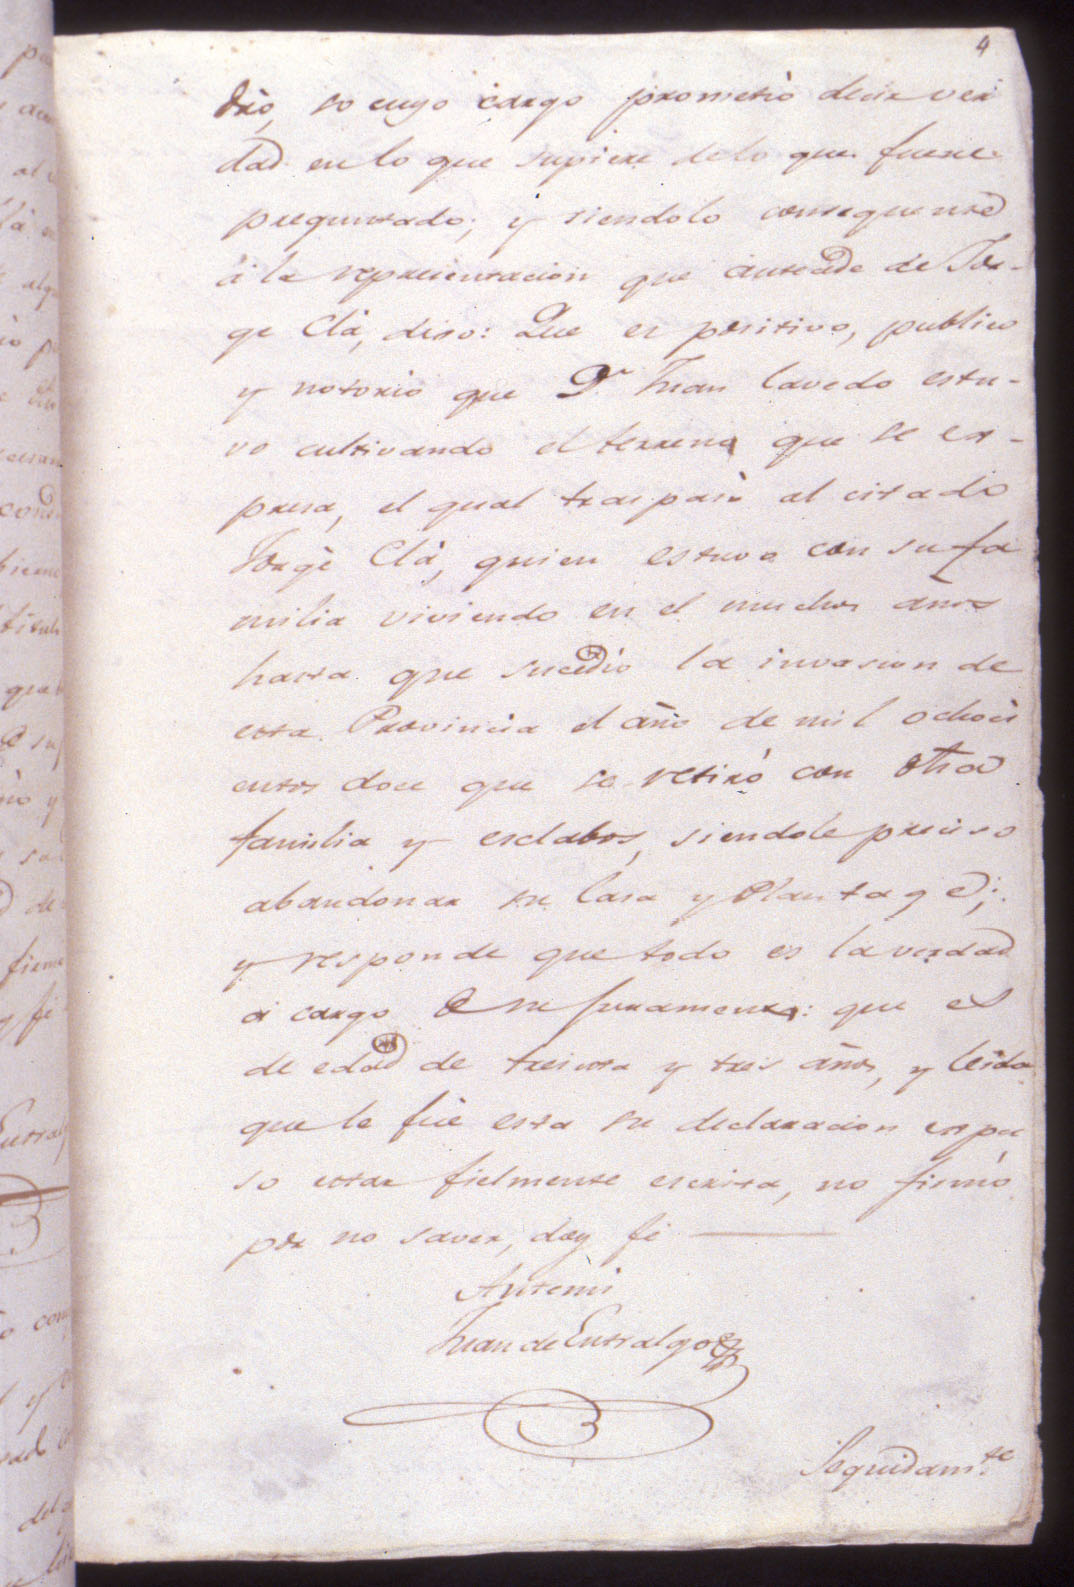 4
dro, so cuyo cargo prometió decir ver
dad en lo que supiere de lo que fuere
preguntado; y siendolo
á la representacion que antecede de Jor-
ge Clá, dixo: Que es positivo, publico
y notorio que Dn. Juan Lavedo estu-
vo cultivando el terreno que se ex-
presa, el qual traspasó al citado
Jorge Clá, quien estuvo con su fa
milia viviendo en el muchos años
hasta que sucedió la invasion de
esta Provincia el año de mil ochoci
entos doce que se retiró con dha
familia y esclabos, siendole preciso
abandonar su Casa y Plantage;
y responde que todo es la verdad
á cargo de su juramento: que es
de edad de treinta y tres años, y leida
que le fué esta su declaracion expu
so estar fielmente escrita, no firmó
por no saver, doy fé
Antemi
Juan de Entralgo
Seguidam.te